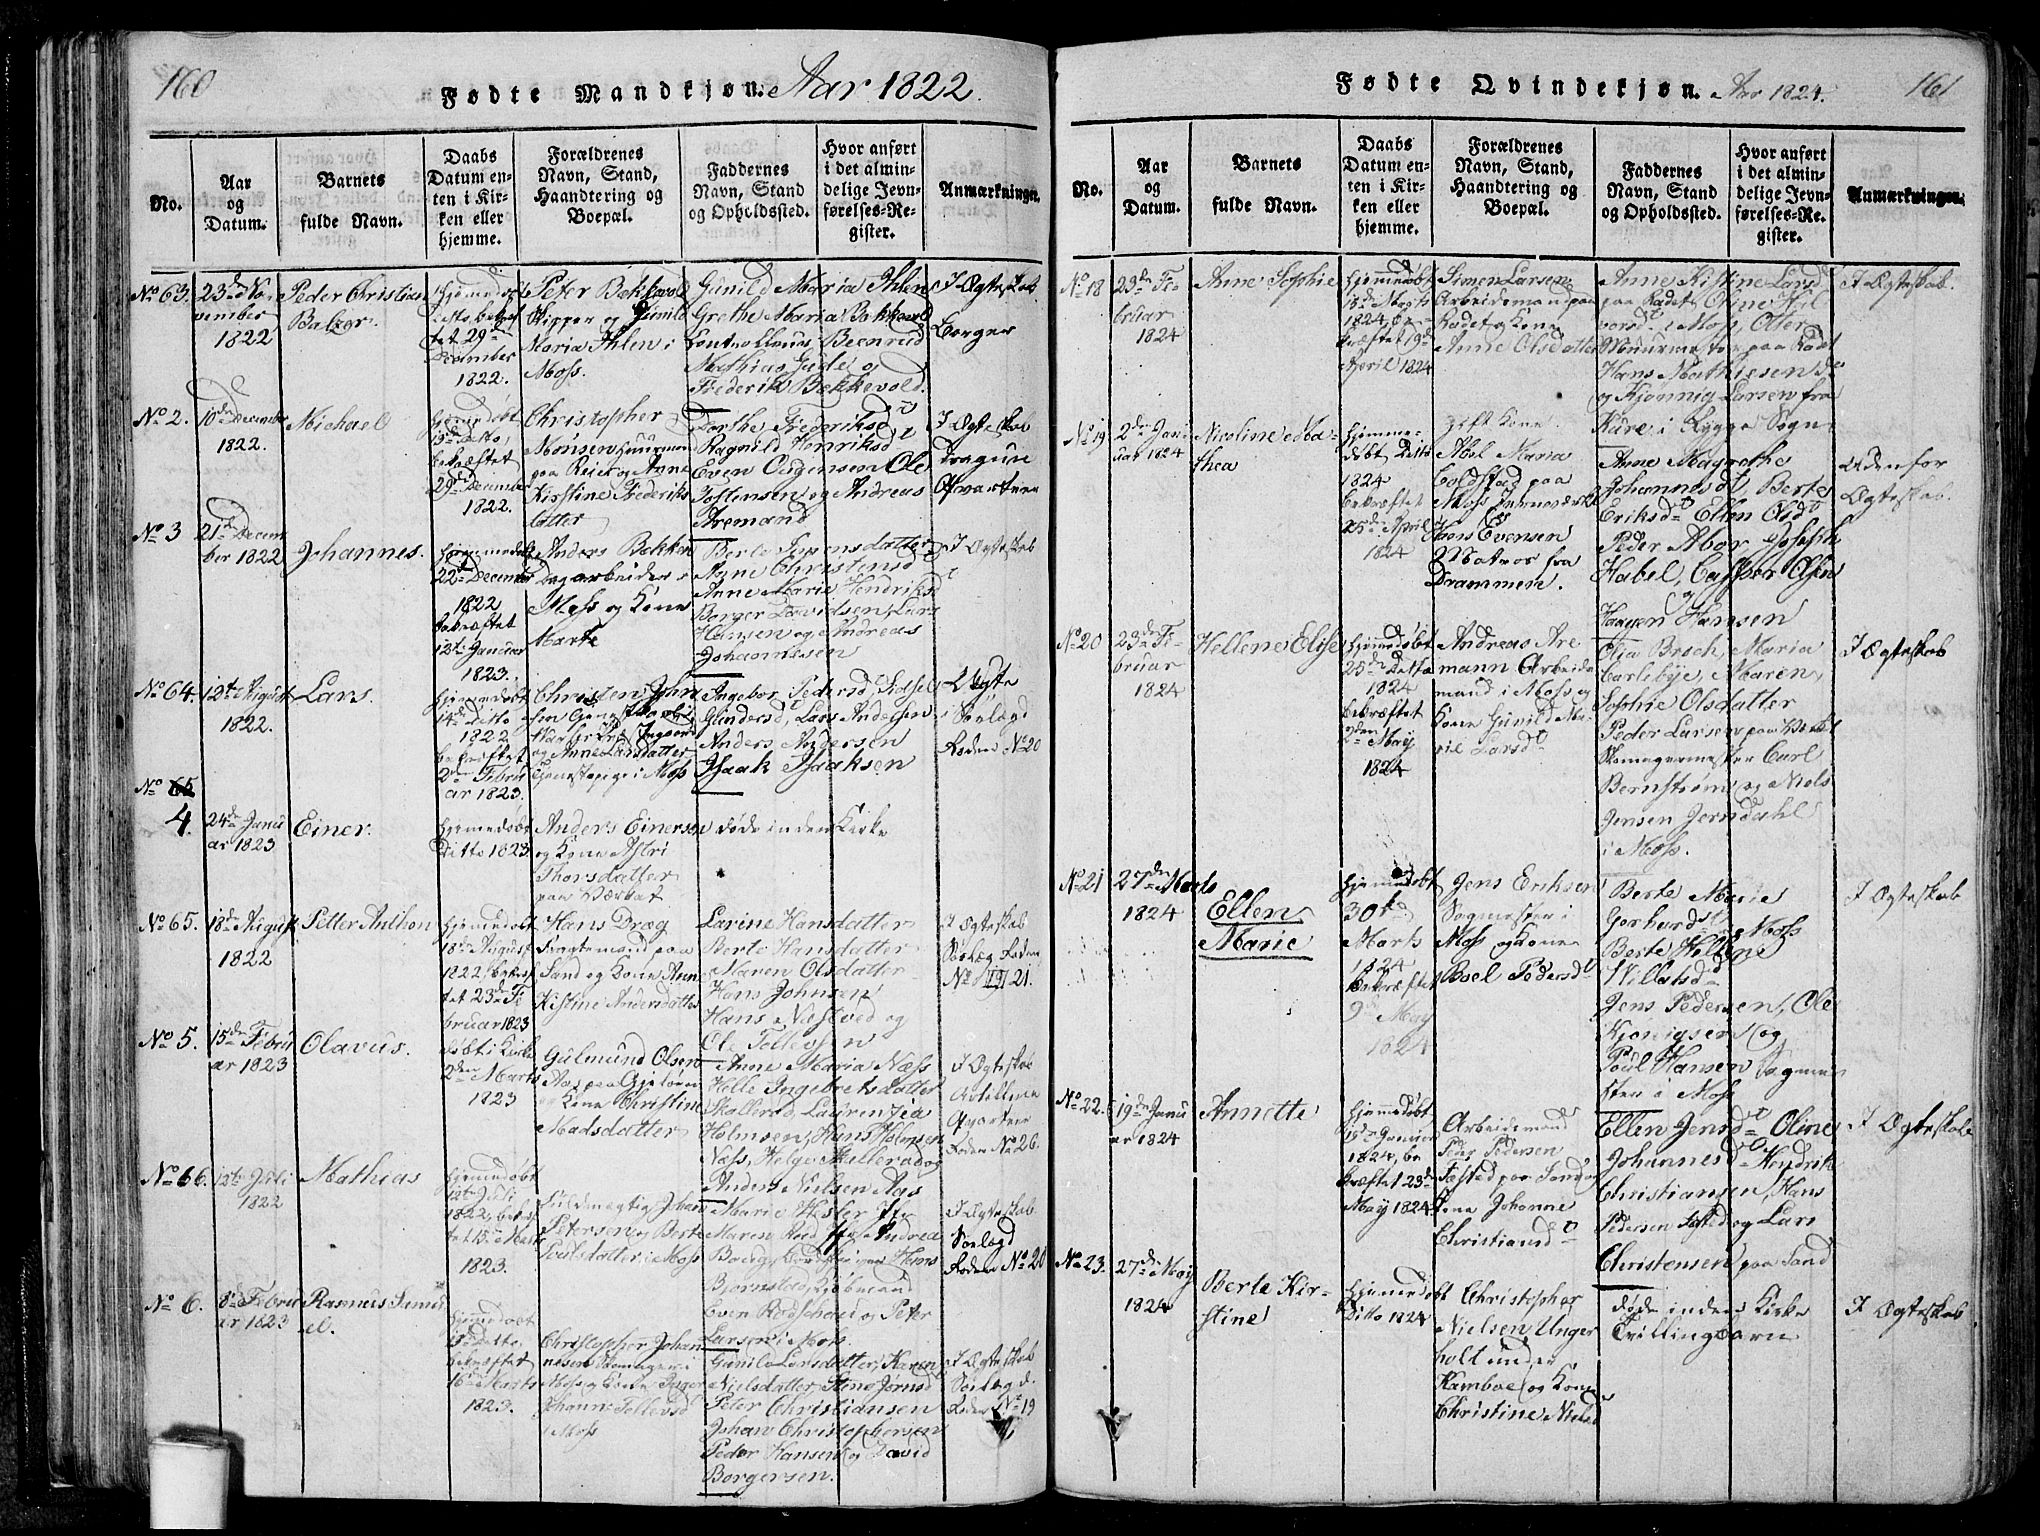 160
Fødte Mandkjøn. Aar 1822.
No.
Aar
og
Datum.
Barnets
fulde Navn.
Daabs
Datum en-
ten i Kir-
ken eller
hjemme.
Forældrenes
Navn, Stand,
Haandtering og
Boepæl.
Faddernes
Navn, Stand
og Opholdssted.
Hvor anført
i det almin-
delige Jevn-
førelses-Re-
gister.
Anmærkninger.
No 63.
23de No-
vember
1822
Peder Christian
Balzer.
Hjemmedøbt
bekræf
tet 29de
December
1822.
Peter Bekkevold
Skipper og Gunild
Maria Ihlen i
Moss.
Gunild Maria Ihlen
Grethe Maria Bekkevold
Mathias Gude og
Frederik Bekkevold.
I Ægteskab
Borger
No 2.
10de December
1822.
Michael
hjemmedøbt
Ditto,
bekræftet
29de December
1822.
Christopher
Monsen
paa Reier og Anne
Kirstine Frederiks
datter
Dorthe Frederiksd
Ragnild Henriksd
Even Ole
Jostensen og Andreas
Aremand
I Ægteskab
Dragun
No 3
21de Decem
ber 1822
Johannes.
hjemmedøbt
22de December
1822
bekræftet
12te Januar
1823.
Anders Bekken
Dagarbeider i
Moss og Kone
Marte
Berte Sørensdatter
Anne Christensd
Anne Marie Hendriksd
Borger Davidsen, Lars
Hansen og Andreas
Johannesen
I Ægteskab
No 64.
12te August
1822.
Lars.
hjemmedøbt
14de Ditto
1822
bekræftet
2den Febru
ar 1823.
Christen John
sen
og Anne Larsdatter
Tjenestepige i Moss
Ingebor Pedersd, Sidsel
Gundersd, Lars Andersen
Anders Andersen
Isaak Isaksen
Uægte
Søelægd
Roden No 20
No 65
4.
24de Janu
ar 1823
Einer.
hjemmedøbt
Ditto 1823
Anders Einersen
og Kone Astri
Thorsdatter
paa Værket
døde inden Kirke
No 65.
18de August
1822
Petter Anthon
hjemmedøbt
18de August
1822, bekræf
tet 23de Fe
bruar 1823
Hans Dræg
paa
Sand og Kone Anne
Kistine Andersdatter
Larine Hansdatter
Berte Hansdatter
Maren Olsdatter
Hans Johnsen
Hans Næstved og
Ole Tollevsen
I Ægteskab
Søelæg Roden
No 21.
No 5.
15de Febru
ar 1823
Olavus.
døbt i Kirke
2den Marts
1823
Gulmund Olsen
Aas paa Gjeløen
og Kone Christine
Madsdatter
Anne Maria Næss
Helle Ingebretsdatter
Skallerud, Laurenzia
Holmsen, Hans Holmsen
Næss, Helge Skallerud og
Anders Nielsen Aas
I Ægteskab
Roden No 26.
No 66.
12te Juli
1822
Mathias
hjemmedøbt
12te Juli
1822, bekræf
tet 15de Marts
1823.
Fuldmægtig Johan
Petersen og Berte
Poulsdatter i Moss
Marie Hesler
Maren Andrea
Hans
Bjørnstad, Kjøbmand
Even Rodschou og Peter
Larsen i Moss.
I Ægteskab
Søelægd
Roden No 20
No 6.
8de Febru
ar 1823
Rasmus Samu
el.
hjemmedøbt
Ditto,
bekræftet
16de Marts
1823.
Christopher Johan
nesen Skomager i
Moss og Kone Inger
Johanne Tollevsd
i Moss
Gunild Larsdatter, Karen
Nielsdatter, Stine Jørnsd
Peter Christiansen
Johan Christophersen
Peder Hansen og David
Borgersen.
I Ægteskab
Søelægd.
Roden No 19
161
Fødte Qvindekjøn. Aar 1824.
No.
Aar
og
Datum.
Barnets
fulde Navn.
Daabs
Datum en-
ten i Kir-
ken eller
hjemme.
Forældrenes
Navn, Stand,
Haandtering og
Boepæl.
Faddernes
Navn, Stand
og Opholdssted.
Hvor anført
i det almin-
delige Jevn-
førelses-Re-
gister.
Anmærkninger.
No 18
29de Fe
bruar
1824
Anne Sophie
hjemmedøbt
18de Marts
1824, be
kræftet 19de
April 1824
Simen Larsen
Arbeidsmand paa
Rødet og Kone
Anne Olsdatter
Anne Kistine Larsd
paa Rødet, Oline Hal
vorsd i Moss, Otter
Muurmester paa Rødet
Hans Mathiesen do
og Kjønnig Larsen fra
Kure i Rygge Sogn
I Ægteskab.
No 19
2den Janu
ar 1824
Nicoline Ma-
thea
hjemme-
døbt Ditto
1824
bekræftet
25de April
1824
gift Kone
Abel Maria
Coldstad paa
Moss Jernværk
Hans Evensen
Matros fra
Drammen.
Anne Magrethe
Johannesdt Berte
Eriksd Ellen Olsd
Peder Moor Joseph
Habel, Casper Olsen
og
Haagen Hansen
Udenfor
Ægteskab.
No 20
23de Fe
bruar
1824
Hellene Elise
hjemmedøbt
25de Ditto
1824
bekræftet
2den May
1824
Andreas Are
mann Arbeids
mand i Moss og
Kone Gunild Ma
rie Larsdt
Olja Broch, Maria
Carlebye, Maren
Sophie Olsdatter
Peder Larsen paa Værket
Skomagermester Carl
Bernstrøm og Niels
Jensen Jerndahl
i Moss.
I Ægteskab
No 21
27de Marts
1824
Ellen
Marie
hjemmedøbt
30te
Marts
1824
bekræftet
9de May
1824
Jens Eriksen
Sagmester i
Moss og Kone
Boel Pedersdt
Berte Marie
Gerhardsdt Moss
Berte Hellene
Willatsd
Jens Pedersen, Ole
Kjønigsen og
Poul Hansen Sagme
ster i Moss
I Ægteskab
No 22.
19de Janu
ar 1824
Annette
hjemmedøbt
19de Januar
1824, be
kræftet 23de
May 1824
Arbeidsmand
Peder Pedersen
Fæsted paa Sand og
Kone Johanne
Christiansdt
Ellen Jensdt Oline
Johannesd Hendrik
Christiansen, Hans
Pedersen Fæsted og Lars
Christensen paa Sand
I Ægteskab
No 23.
27de May
1824
Berte Kir-
stine
hjemmedøbt
Ditto 1824
Christopher
Nielsen Unger
holt under
Kamboe og Kone
Christine Nielsd
døde inden Kirke
Tvillingbarn
I Ægteskab.